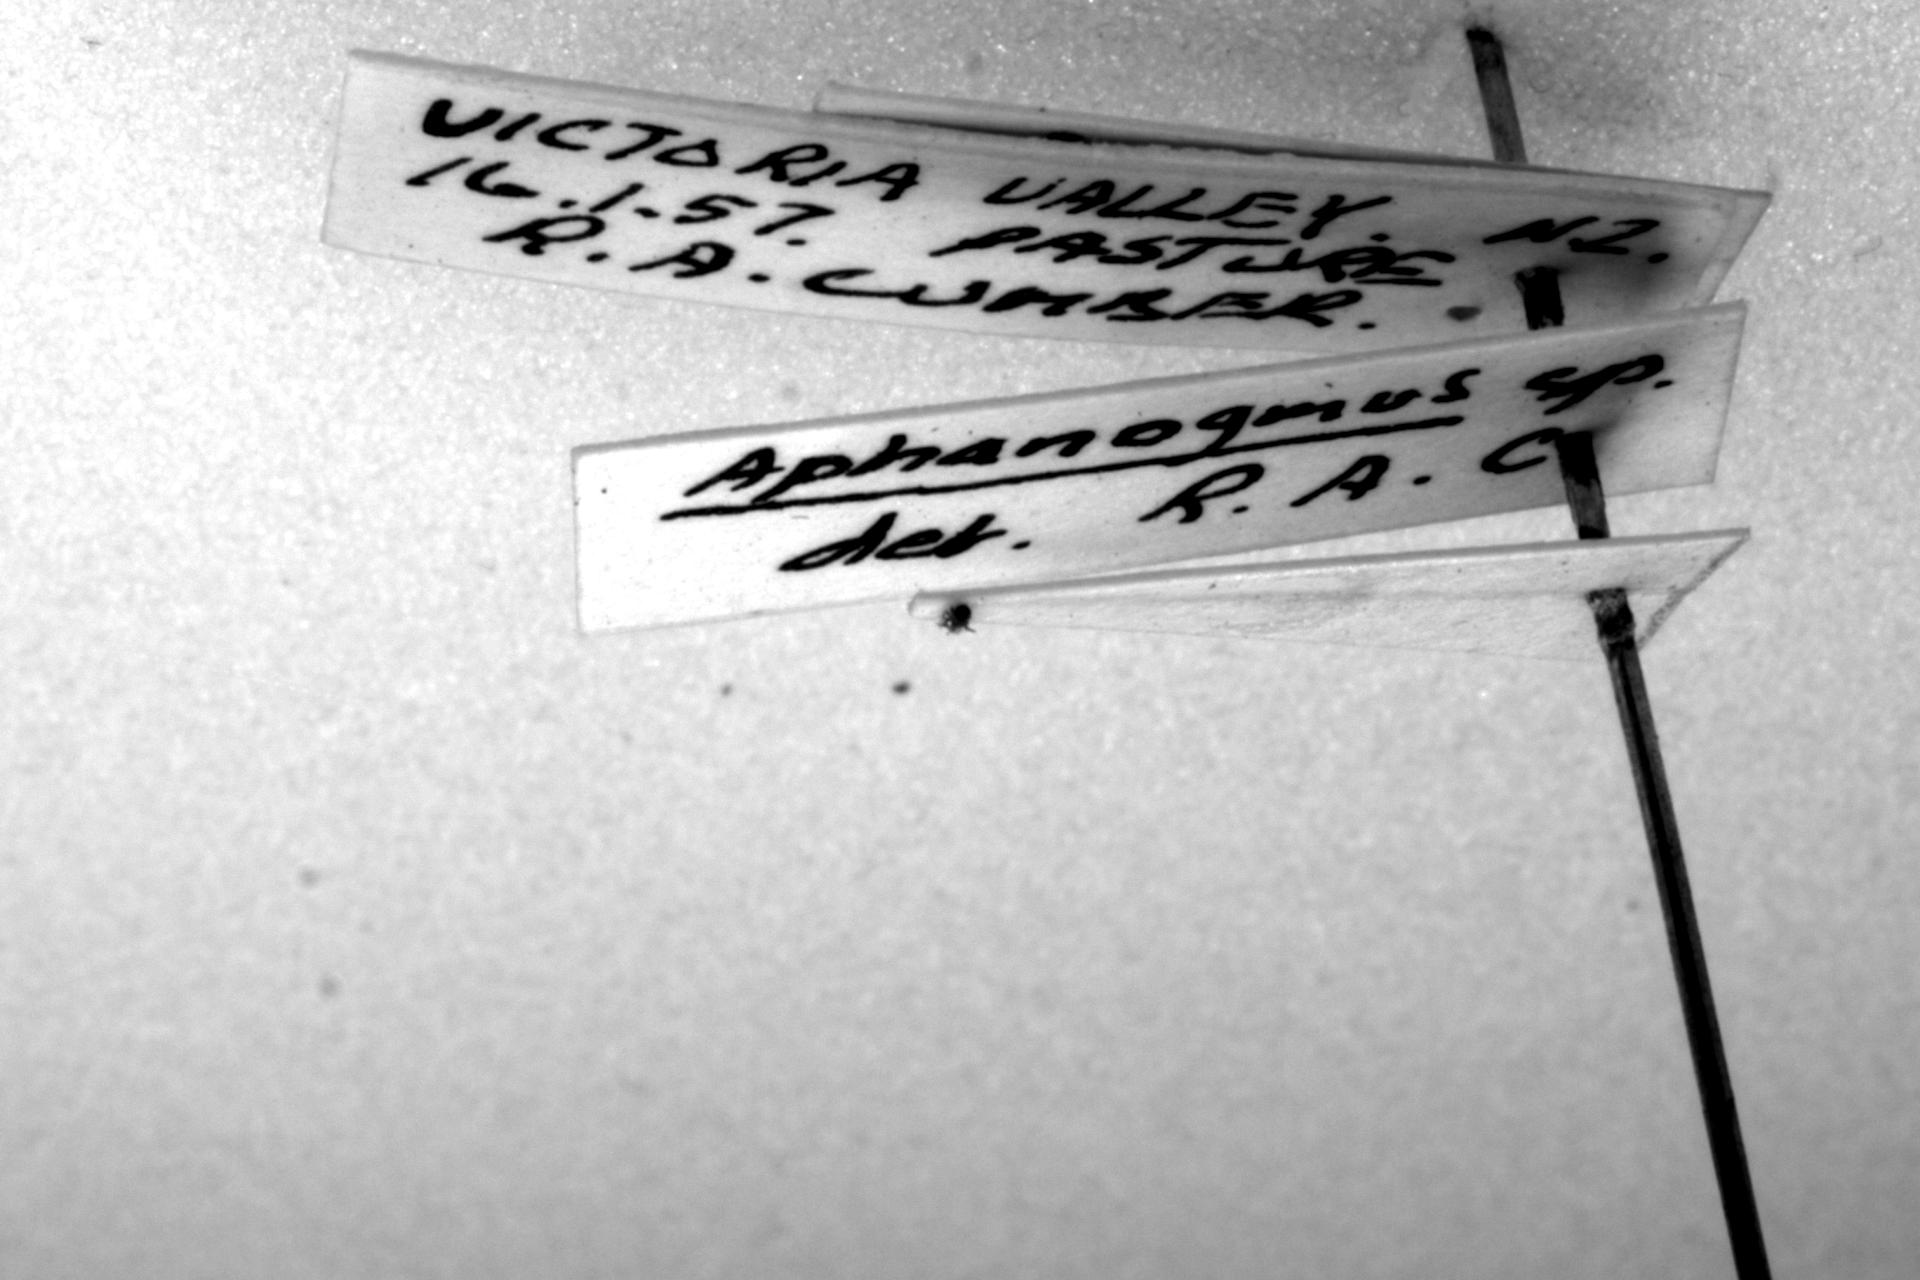 VICTORIA VALLEY. NZ.
16.1.57. PASTURE
R.A. CUMBER.
Aphanogmus sp.
det. R. A. C